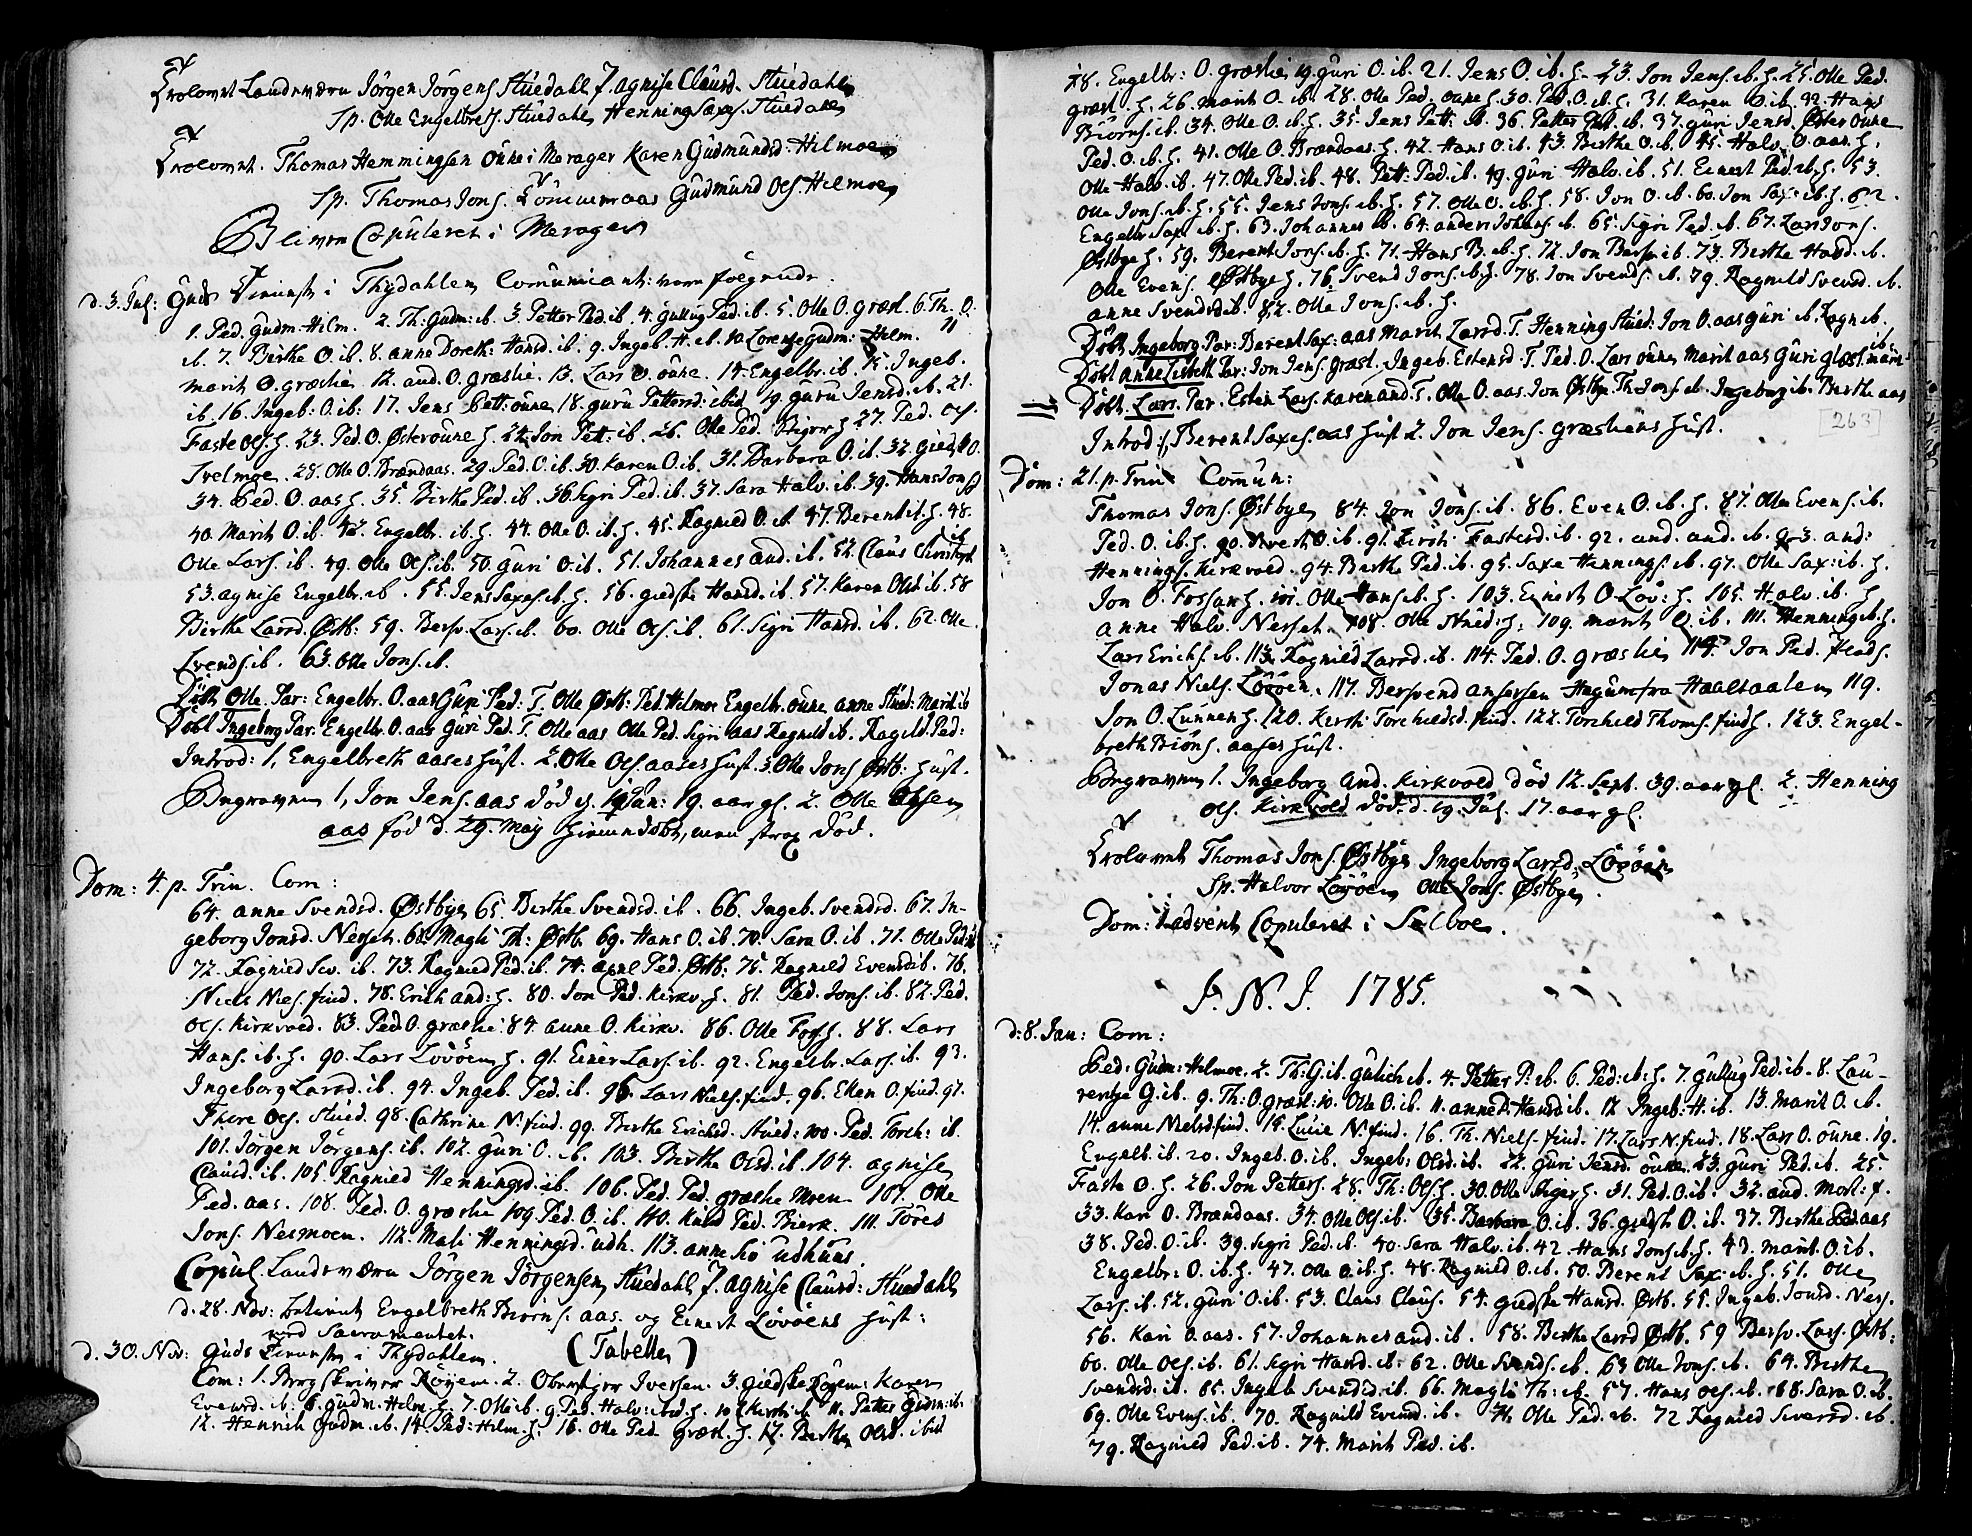 Trolovet Landsværn Jörgen Jörgens. Stüedahl f. agnise Claüsd. Stüedahl
Sp. Olle Engelbrets. Stüedahl Henning Saxes. Stüedahl
Trolovet. Thomas Hemmingsen öune i Merager Karen Gudmundsd. Hilmoe
Sp. Thomas Jons. aas Gudmund Ols. Hilmoe
Bleven Copuleret i Merager
d. 3. Jul: Guds Tienneste i Thydahlen Comuniant:
1. Ped. Gudm. Hilm. 2. Th: Gudm: ib. 3 Petter Ped. ib. 4. gullug Ped. ib. 5. Olle O. græsl. 6. Th. O.
ib. 7. Birthe O. ib. 8. anne Doreth: Hansd. ib. 9. Ingeb. H. ib. 10. Lorentse Gudm: Helm. 11
marit O. græslie. 12. and. O. græslie. 13. Lars O. öune. 14. Engelbr. ib. 15. Ingeb.
ib. 16. Ingeb: O. ib: 17. Jens Pett. öune 18. guru Pettersd: ibid 19. guru Jensd. ib. 21.
Faste Ols. h. 23. Ped. O. Østeröune h. 24. Jon Pett: ib. 26. Olle Ped. Stiger h 27. Ped. Ols.
Svelmoe. 28. Olle O. Brændaas. 29. Ped. O. ib. 30. Karen O. ib. 31. Barbara O. ib. 32. Giedsk O.
34. Ped. O. aas h. 35. Birthe Ped. ib. 36. Sigri Ped. ib. 37. Sara Halv. ib. 39. Hans Jons.
40. Marit O. ib. 42. Engelbr. ib. h. 44. Olle O. ib. h. 45. Ragnild O. ib. 47. Berent ib. h. 48.
Olle Lars. ib. 49. Olle Ols. ib. 50. Guri O. ib. 51. Johannes and. ib. 52. Claus Christoph.
53. agnise Engelbr. ib. 55. Jens Saxes. ib. h. 56. giedske Hansd. ib. 57. Karen Olsd. ib. 58
Birthe Larsd. Østb: 59. Bersv. Lars. ib. 60. Olle Ols. ib. 61. Sigri Hansd. ib. 62. Olle
Svends. ib. 63. Olle Jons. ib.
Döbt Olle. Par: Engelbr. O. aas Guri Ped: T. Olle Østb: Ped. Hilmoe Engelbr. öune anne Stued: Marit ib
Döbt Ingeborg Par. Engelbr. O. aas Guri Ped. T. Olle aas Olle Ped. Sigri aas Ragnild ib. Ragild. Ped:
Introd: 1, Engelbreth aases hust. 2. Olle Ols. aases hust. 3. Olle Jons. Østb: hust.
Begraven 1, Jon Jens. aas död d. 19 Jun: 19. aar gl. 2. Olle Olsen
aas föd d. 29. Maj hiemmedöbt, men strax död.
Dom: 4. p. Trin. Com:
64. anne Svendsd. Østbye 65. Birthe Svendsd. ib. 66. Ingeb. Svendsd. 67. In-
geborg Jonsd. Nesset. 68. Magli Th: Østb. 69. Hans O. ib. 70. Sara O. ib. 71. Olle Ped: ib
72. Ragnild Siv. ib. 73. Ragnild Ped. ib. 74. Ped. Østb: 75. Ragnild Evensd ib. 76.
Niels Niels. find. 78. Erich and: h. 80. Jon Ped. Kirkv. h. 81. Ped. Jons. ib. 82. Ped.
Ols. Kirkvold. 83. Ped. O. græslie. 84. anne O. Kirkv. 86. Olle Foss. h. 88. Lars
Hans. ib. h. 90. Lars Lövöen h. 91. Einer Lars. ib. 92. Engelbr. Lars. ib. 93.
Ingeborg Larsd. ib. 94. Ingeb. Ped. ib. 95. Lars Niels. find. 96. Ellen O. find. 97.
Thore Ols. Stued. 98. Cathrine N. find. 99. Birthe Erichsd. Stued: 100. Ped. Torch: ib.
101. Jörgen Jörgens. ib. 102. Guri O. ib. 103. Birthe Olsd. ib. 104. agnise
Claüsd. ib. 105. Ragnild Henningsd. ib. 106. Ped. Ped. græslie Moen 107. Olle
Ped. aas. 108. Ped. O. græslie 109. Ped. O. ib. 110. Knud Ped. Bierk. 111. Töres
Jons. Nesmoen. 112. Mali Henningsd. udh. 113. anne udhuus.
Copul. Landsværn Jörgen Jörgensen Stüedahl f. agnise Claüsd: Stüedahl
d. 28. Nov: betient Engelbreth Biörns. aas. og Einert Lövöens hust:
med Sacramentet.
d. 30. Nov: Guds Tieneste i Thydahlen. (Tabellen)
Com: 1. Bergskriver Röyem. 2. Oberstiger Iversen. 3. giedske Röyem: Karen
Evensd. ib. 6. Gudm. Helm. h. 7. Olle ib. 9. Ped. Halv: h. 10 ib 11. Petter Gudm: ib.
12. Henrich Gudm. ib. 14. Ped: Helm. h. 16. Olle Ped. græsl. h. 17. Berthe Olsd. ibid
18. Engelbr: O. græslie 19. Guri O. ib. 21. Jens O. ib. h. 23. Jon Jens. ib. h. 25. Olle Ped.
græsl. h. 26. Marit O. ib. 28. Olle Ped. öune h. 30. Ped. O. ib. h. 31. Karen O. ib. 32. Hans
Biörns. ib. 34. Olle O. ib. h. 35. Jens Pett: ib. 36. Petter Pet. ib. 37. Guri Jensd. Øster öune
Ped. O. ib. h. 41. Olle O. Brændaas. h. 42. Hans O. ib. 43. Birthe O. ib. 45. Halv. O. aas. h.
Olle Halv. ib. 47. Olle Ped. ib. 48. Pett: Ped. ib. 49. Guri Halv. ib. 51. Einert Ped. ib. h. 53.
Olle Jons. ib. h. 55. Jens Jons. ib. h. 57. Olle O. ib. h. 58. Jon O. ib. 60. Jon Sax: ib. h. 62.
Engelbr. Sax: ib. h. 63. Johannes ib. 64. anders Johans. ib. 65. Sigri Ped. ib. 67. Lars Jons.
Østbye h. 59. Berent Jons. ib. h. 71. Hans B. ib. h. 72. Jon Bersv. ib. 73. Berthe Hansd. ib.
Olle Evens. Østbye h. 76. Svend Jons. ib. h. 78. Jon Svends. ib. 79. Ragnild Svensd. ib.
anne Svendsd. ib. 82. Olle Jons. ib. h.
Döbt Ingeborg Par: Berent Sax: aas Marit Larsd. T. Henning Stued. Jon O. aas Guri ib. Ragn ib.
Döbt anne Lisbeth Par: Jon Jens. Græsl. Ingeb. Estensd. T. Ped. O. Lars öune Marit aas Guri græsl. marit ib:
Döbt. Lars. Par. Esten Lars. Karen and. T. Olle O. aas. Jon Østby. Th. Jons. ib. Ingeborg ib. Birthe aas
[263]
Introd: 1, Berent Saxes. aas hust 2. Jon Jens. græsliens hust.
Dom: 21. p. Trin Comun:
Thomas Jons. Østbye 84. Jon Jons. ib. 86. Even O. ib. h. 87. Olle Evens. ib.
Ped. O. ib. h. 90. Sivert O. ib. 91. Kirsti Fastesd. ib. 92. and. and. ib. 93. and:
Hennings. Kirkvold. 94. Birthe Ped. ib. 95. Saxe Hennings. ib. 97. Olle Sax: ib. h.
Jon O. Fossan h. 101. Olle Hans. ib. h. 103. Einert O. Löv: h. 105. Halv. ib. h
anne Halv. Nesset. 108. Olle Stued: h. 109. marit O. ib. 111. Henning ib. h.
Lars Erichs. ib. 113. Ragnild Larsd. ib. 114. Ped. O. græslie 115. Jon Ped. finds.
Jonas Niels. Lövöen. 117. Bersvend ansersen fra Haaltaalen 119.
Jon O. Lunnen h. 120. Kersti Torchildsd. find. 122. Torchild Thoms. find h. 123. Engel-
breth Biörns. aases hust.
Begraven 1. Ingeborg And. Kirkvold död 12. Sept. 39. aar gl. 2. Henning
Ols. Kirkvold död d. 19. Jul. 17. aar gl.
Trolovet Thomas Jons. Østbye Ingeborg Larsd. Lövöen
Sp. Halvor Lövöen Olle Jons. Østbye.
Dom: 1 advent Copuleret i Selboe.
J. N. J. 1785.
d: 8. Jan: Com:
Ped. Gudm: Helmoe. 2. Th: G. ib. Gulich ib. 4. Petter P: ib. 6. Ped: ib: h. 7. Gullug Ped. ib. 8. Lau-
rentse G. ib. 9. Th: O. græsl. 10. Olle O. ib. 11. anne D. Hansd ib. 12 Ingeb: H. ib. 13. Marit O. ib.
14. anne Nielsd find. 15. Lucie N. find. 16. Th. Niels. find. 17. Lars N. find. 18. Lars O. öune. 19.
Engelb. ib. 20. Ingeb. O. ib. Ingeb: Olsd. ib. 22. Guri Jensd. öune. 23. Guri Ped. ib. 25.
Faste O. h. 26. Jon Petters. 28. Th: Ols. h. 30. Olle Stiger h. 31. Ped. O. ib. 32. and. Mort: f.
33. Kari O. Brændaas. 34. Olle Ols. ib. 35. Barbara O. ib. 36. giedsk O. ib. 37. Birthe Ped. aas
38. Ped. O. ib. 39. Sigri Ped. ib. 40. Sara Halv. ib. 42. Hans Jons. ib. h. 43. Marit. O. ib.
Engelbr: O. ib. h. 47. Olle O. ib. h. 48. Ragnild O. ib. 50. Berent Sax: ib. h. 51. Olle
Lars. ib. 52. Guri O. ib. 53. Claus Claus. 54. giedske Hansd. Østb. 55. Ingeb. Jonsd. Ness.
56. Kari O. aas. 57. Johannes and. ib. 58. Birthe Larsd Østb. 59 Bersv. Lars. Østb:
60. Olle Ols. ib. 61. Sigri Hansd. ib. 62. Olle Svends. ib. 63 Olle Jons. ib. 64. Birthe
Svendsd. ib. 65. Ingeb Svendsd. ib. 66. Magli Th: ib. 57. Hans Ols. ib. 68. Sara O. ib.
69. Olle Evens. ib. 70. Ragnild Evensd. ib. 71. Olle Ped. ib. 72 Ragnild Siversd. ib.
79. Ragnild Ped. ib. 74. Marit Ped. ib.